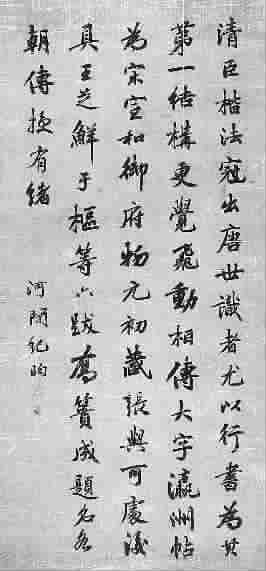 清臣楷法冠出唐世識者尤以行書為其
第一結構更覺飛動相傳大字瀛州帖
為宋宣和御府物元初藏張與可處後
具王芝鮮于樞等六跋為篢成題名各
朝傳授有緒
河間紀昀